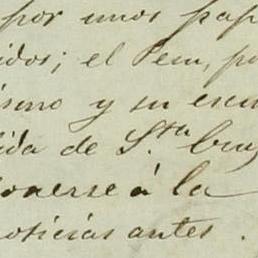 por unos pap
idos; el Peru, po
ismo y su escu
ida de S.ta Cruz
onerse á la
noticias antes.